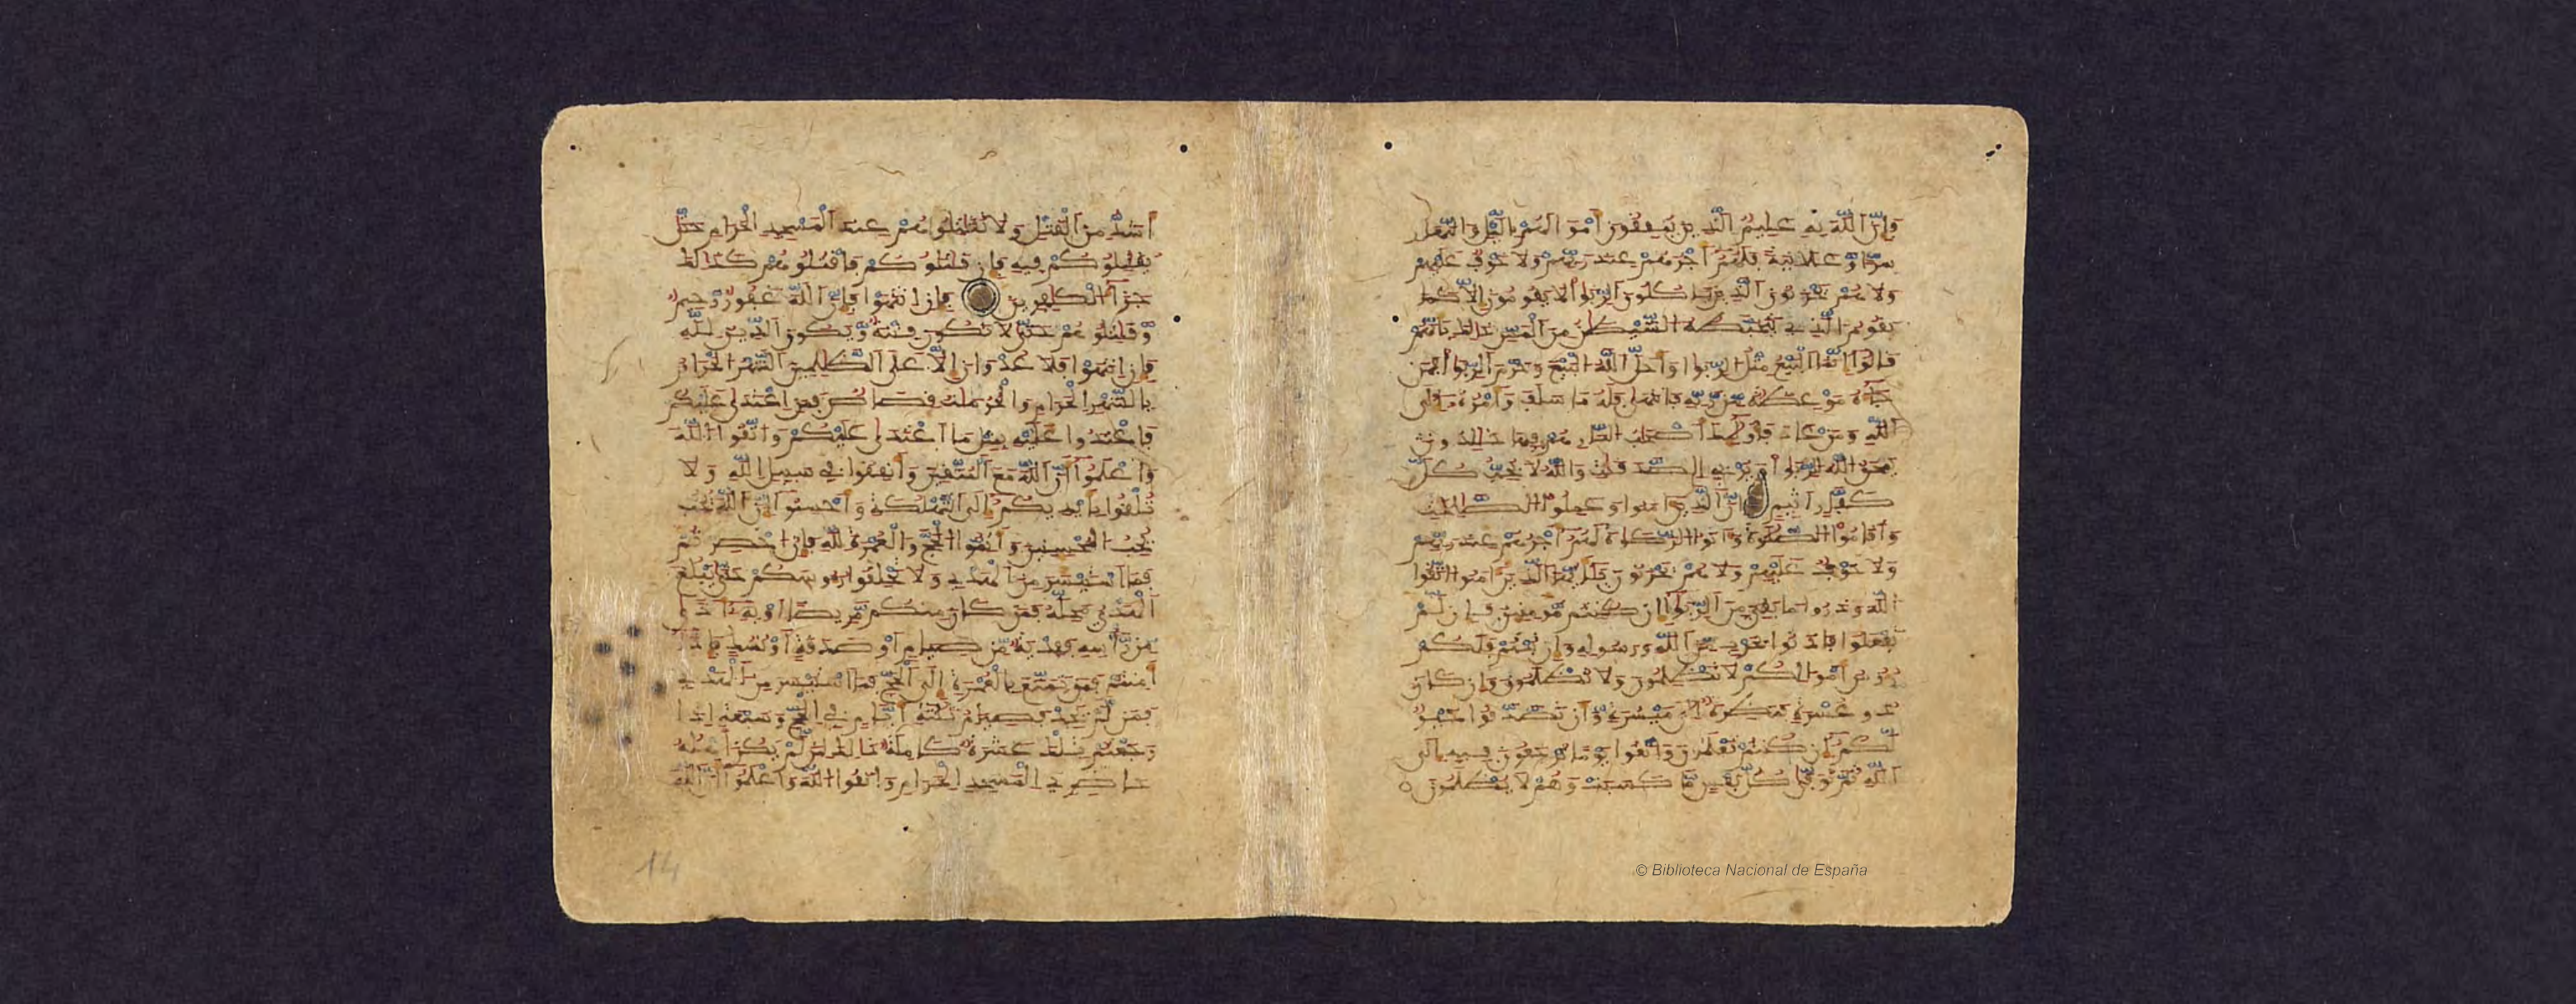 فَإِنَّ اَللَّهَ بِهِ عَلِيمٌ اَلَّذِينَ يُنفِقُونَ أَمْوَالَهُم بِالَّيْلِ وَالنَّهَارِ
سِرًّا وَعَلَانِيَةً فَلَهُمْ أَجْرُهُمْ عِندَ رَبِّهِمْ وَلَا خَوْفٌ عَلَيْهِمْ
وَلَا هُمْ يَحْزَنُونَ اَلَّذِينَ يَاكُلُونَ اَلرِّبَوٰا لَا يَقُومُونَ إِلَّا كَمَا
يَقُومُ اَلَّذِي يَتَخَبَّطُهُ اَلشَّيْطَٰنُ مِنَ اَلْمَسِّ ذَٰلِكَ بِأَنَّهُمْ
قَالُوا إِنَّمَا اَلْبَيْعُ مِثْلُ اَلرِّبَوٰا وَأَحَلَّ اَللَّهُ اَلْبَيْعَ وَحَرَّمَ اَلرِّبَوٰا فَمَن
جَآءَهُ مَوْعِظَةٌ مِّن رَّبِّهِ فَانتَهَىٰ فَلَهُ مَا سَلَفَ وَأَمْرُهُ إِلَى
اَللَّهِ وَمَنْ عَادَ فَأُوْلَٰئِكَ أَصْحَٰبُ اَلنَّارِ هُمْ فِيهَا خَٰلِدُونَ
يَمْحَقُ اَللَّهُ اَلرِّبَوٰا وَيُرْبِي اِلصَّدَقَٰتِ وَاللَّهُ لَا يُحِبُّ كُلَّ
كَفَّارٍ أَثِيمٍ إِنَّ اَلَّذِينَ ءَامَنُوا وَعَمِلُوا اَلصَّٰلِحَٰتِ
وَأَقَامُوا اَلصَّلَوٰةَ وَءَاتَوُا اَلزَّكَوٰةَ لَهُمْ أَجْرُهُمْ عِندَ رَبِّهِمْ
وَلَا خَوْفٌ عَلَيْهِمْ وَلَا هُمْ يَحْزَنُونَ يَٰأَيُّهَا اَلَّذِينَ ءَامَنُوا اتَّقُوا
اَللَّهَ وَذَرُوا مَا بَقِيَ مِنَ اَلرِّبَوٰا إِن كُنتُم مُّومِنِينَ فَإِن لَّمْ
تَفْعَلُوا فَاذَنُوا بِحَرْبٍ مِّنَ اَللَّهِ وَرَسُولِهِ وَإِن تُبْتُمْ فَلَكُمْ
رُءُوسُ أَمْوَٰلِكُمْ لَا تَظْلِمُونَ وَلَا تُظْلَمُونَ وَإِن كَانَ
ذُو عُسْرَةٍ فَنَظِرَةٌ إِلَىٰ مَيْسُرَةٍ وَأَن تَصَّدَّقُوا خَيْرٌ
لَّكُمْ إِن كُنتُمْ تَعْلَمُونَ وَاتَّقُوا يَوْمًا تُرْجَعُونَ فِيهِ إِلَى
اَللَّهِ ثُمَّ تُوَفَّىٰ كُلُّ نَفْسٍ مَّا كَسَبَتْ وَهُمْ لَا يُظْلَمُونَ
أَشَدُّ مِنَ اَلْقَتْلِ وَلَا تُقَٰتِلُوهُمْ عِندَ اَلْمَسْجِدِ اِلْحَرَامِ حَتَّىٰ
يُقَٰتِلُوكُمْ فِيهِ فَإِن قَٰتَلُوكُمْ فَاقْتُلُوهُمْ كَذَٰلِكَ
جَزَآءُ اُلْكَٰفِرِينَ فَإِنِ اِنتَهَوْا فَإِنَّ اَللَّهَ غَفُورٌ رَّحِيمٌ
وَقَٰتِلُوهُمْ حَتَّىٰ لَا تَكُونَ فِتْنَةٌ وَيَكُونَ اَلدِّينُ لِلَّهِ
فَإِنِ اِنتَهَوْا فَلَا عُدْوَانَ إِلَّا عَلَى اَلظَّٰلِمِينَ اَلشَّهْرُ اُلْحَرَامُ
بِالشَّهْرِ اِلْحَرَامِ وَالْحُرُمَٰتُ قِصَاصٌ فَمَنِ اِعْتَدَىٰ عَلَيْكُمْ
فَاعْتَدُوا عَلَيْهِ بِمِثْلِ مَا اَعْتَدَىٰ عَلَيْكُمْ وَاتَّقُوا اُللَّهَ
وَاعْلَمُوا أَنَّ اَللَّهَ مَعَ اَلْمُتَّقِينَ وَأَنفِقُوا فِي سَبِيلِ اِللَّهِ وَلَا
تُلْقُوا بِأَيْدِيكُمْ إِلَى اَلتَّهْلُكَةِ وَأَحْسِنُوا إِنَّ اَللَّهَ يُحِبُّ
يُحِبُّ اُلْمُحْسِنِينَ وَأَتِمُّوا اُلْحَجَّ وَالْعُمْرَةَ لِلَّهِ فَإِنْ أُحْصِرْتُمْ
فَمَا اَسْتَيْسَرَ مِنَ اَلْهَدْيِ وَلَا تَحْلِقُوا رُءُوسَكُمْ حَتَّىٰ يَبْلُغَ
اَلْهَدْيُ مَحِلَّهُ فَمَن كَانَ مِنكُم مَّرِيضًا أَوْ بِهِ أَذًى
مِّن رَّأْسِهِ فَفِدْيَةٌ مِّن صِيَامٍ أَوْ صَدَقَةٍ أَوْ نُسُكٍ فَإِذَا
أَمِنتُمْ فَمَن تَمَتَّعَ بِالْعُمْرَةِ إِلَى اَلْحَجِّ فَمَا اَسْتَيْسَرَ مِنَ اَلْهَدْيِ
فَمَن لَّمْ يَجِدْ فَصِيَامُ ثَلَٰثَةِ أَيَّامٍ فِي اِلْحَجِّ وَسَبْعَةٍ إِذَا
رَجَعْتُمْ تِلْكَ عَشَرَةٌ كَامِلَةٌ ذَٰلِكَ لِمَن لَّمْ يَكُنْ أَهْلُهُ
حَاضِرِي اِلْمَسْجِدِ اِلْحَرَامِ وَاتَّقُوا اُللَّهَ وَاعْلَمُوا أَنَّ اَللَّهَ
14
© Biblioteca Nacional de España